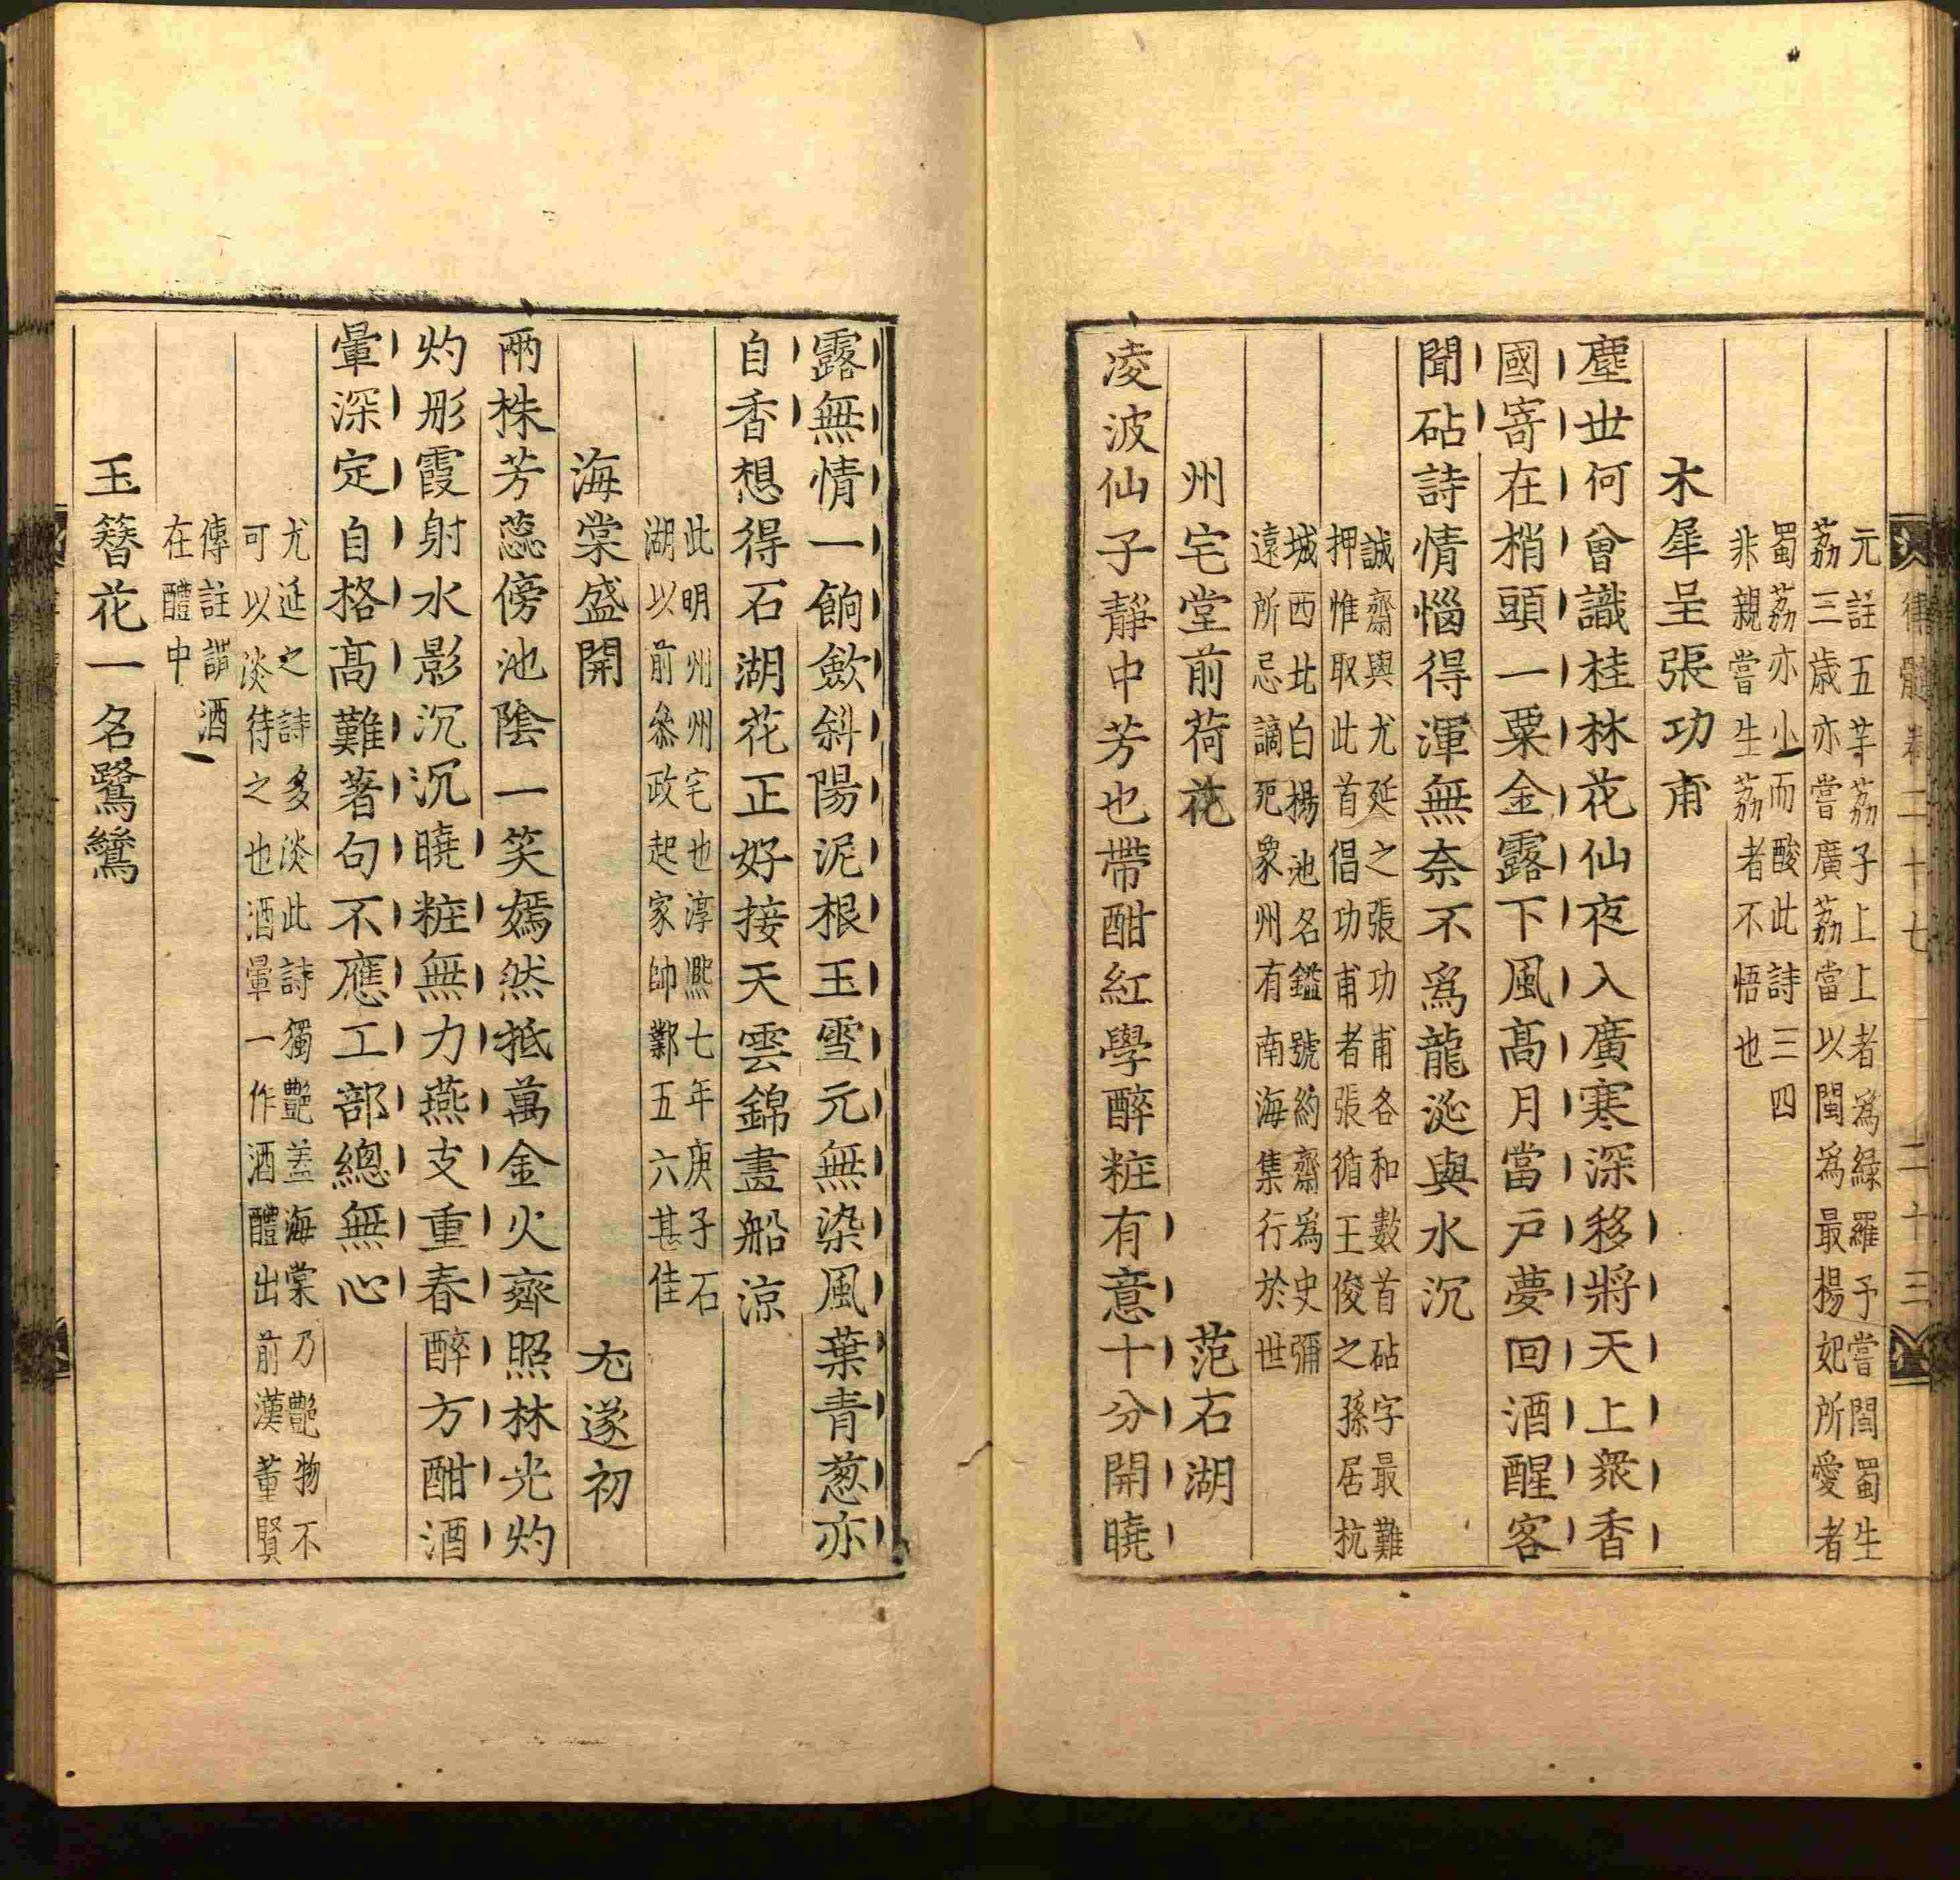 律髓卷二十七
二十三
元註五芊荔子上上者爲綠羅予嘗閬蜀生
荔三歲亦嘗廣荔當以閩爲最楊妃所愛者
蜀荔亦小而酸此詩三四
非親嘗生荔者不悟也
木犀呈張功甫
塵世何曾識桂林花仙夜入廣寒深移將天上衆香
國寄在梢頭一粟金露下風髙月當戸夢回酒醒客
聞砧詩情惱得渾無奈不爲龍涎與水沉
誠齋與尤延之張功甫各和數首砧字最難
押惟取此首倡功甫者張循王俊之孫居杭
城西北白楊池名鎡號約齋爲史彌
遠所忌謫死象州有南海集行於世
州宅堂前荷花
范石湖
凌波仙子靜中芳也帶酣紅學醉粧有意十分開曉
露無情一餉斂斜陽泥根玉雪元無染風葉青葱亦
自香想得石湖花正好接天雲錦畫船涼
此明州州宅也淳熈七年庚子石
湖以前叅政起家帥鄞五六甚佳
海棠盛開
尤遂初
兩株芳蕊傍池隂一笑嫣然抵萬金火齊照林光灼
灼彤霞射水影沉沉曉粧無力燕支重春醉方酣酒
暈深定自格髙難著句不應工部總無心
尤延之詩多淡此詩獨艶盖海棠乃艶物不
可以淡待之也酒暈一作酒醴出前漢董賢
傳註謂酒
在醴中
玉簪花一名鷺鷥